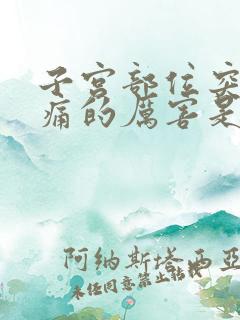 子宫部位突
痛的厉害是
阿纳斯塔西亚
未经同意禁止转载